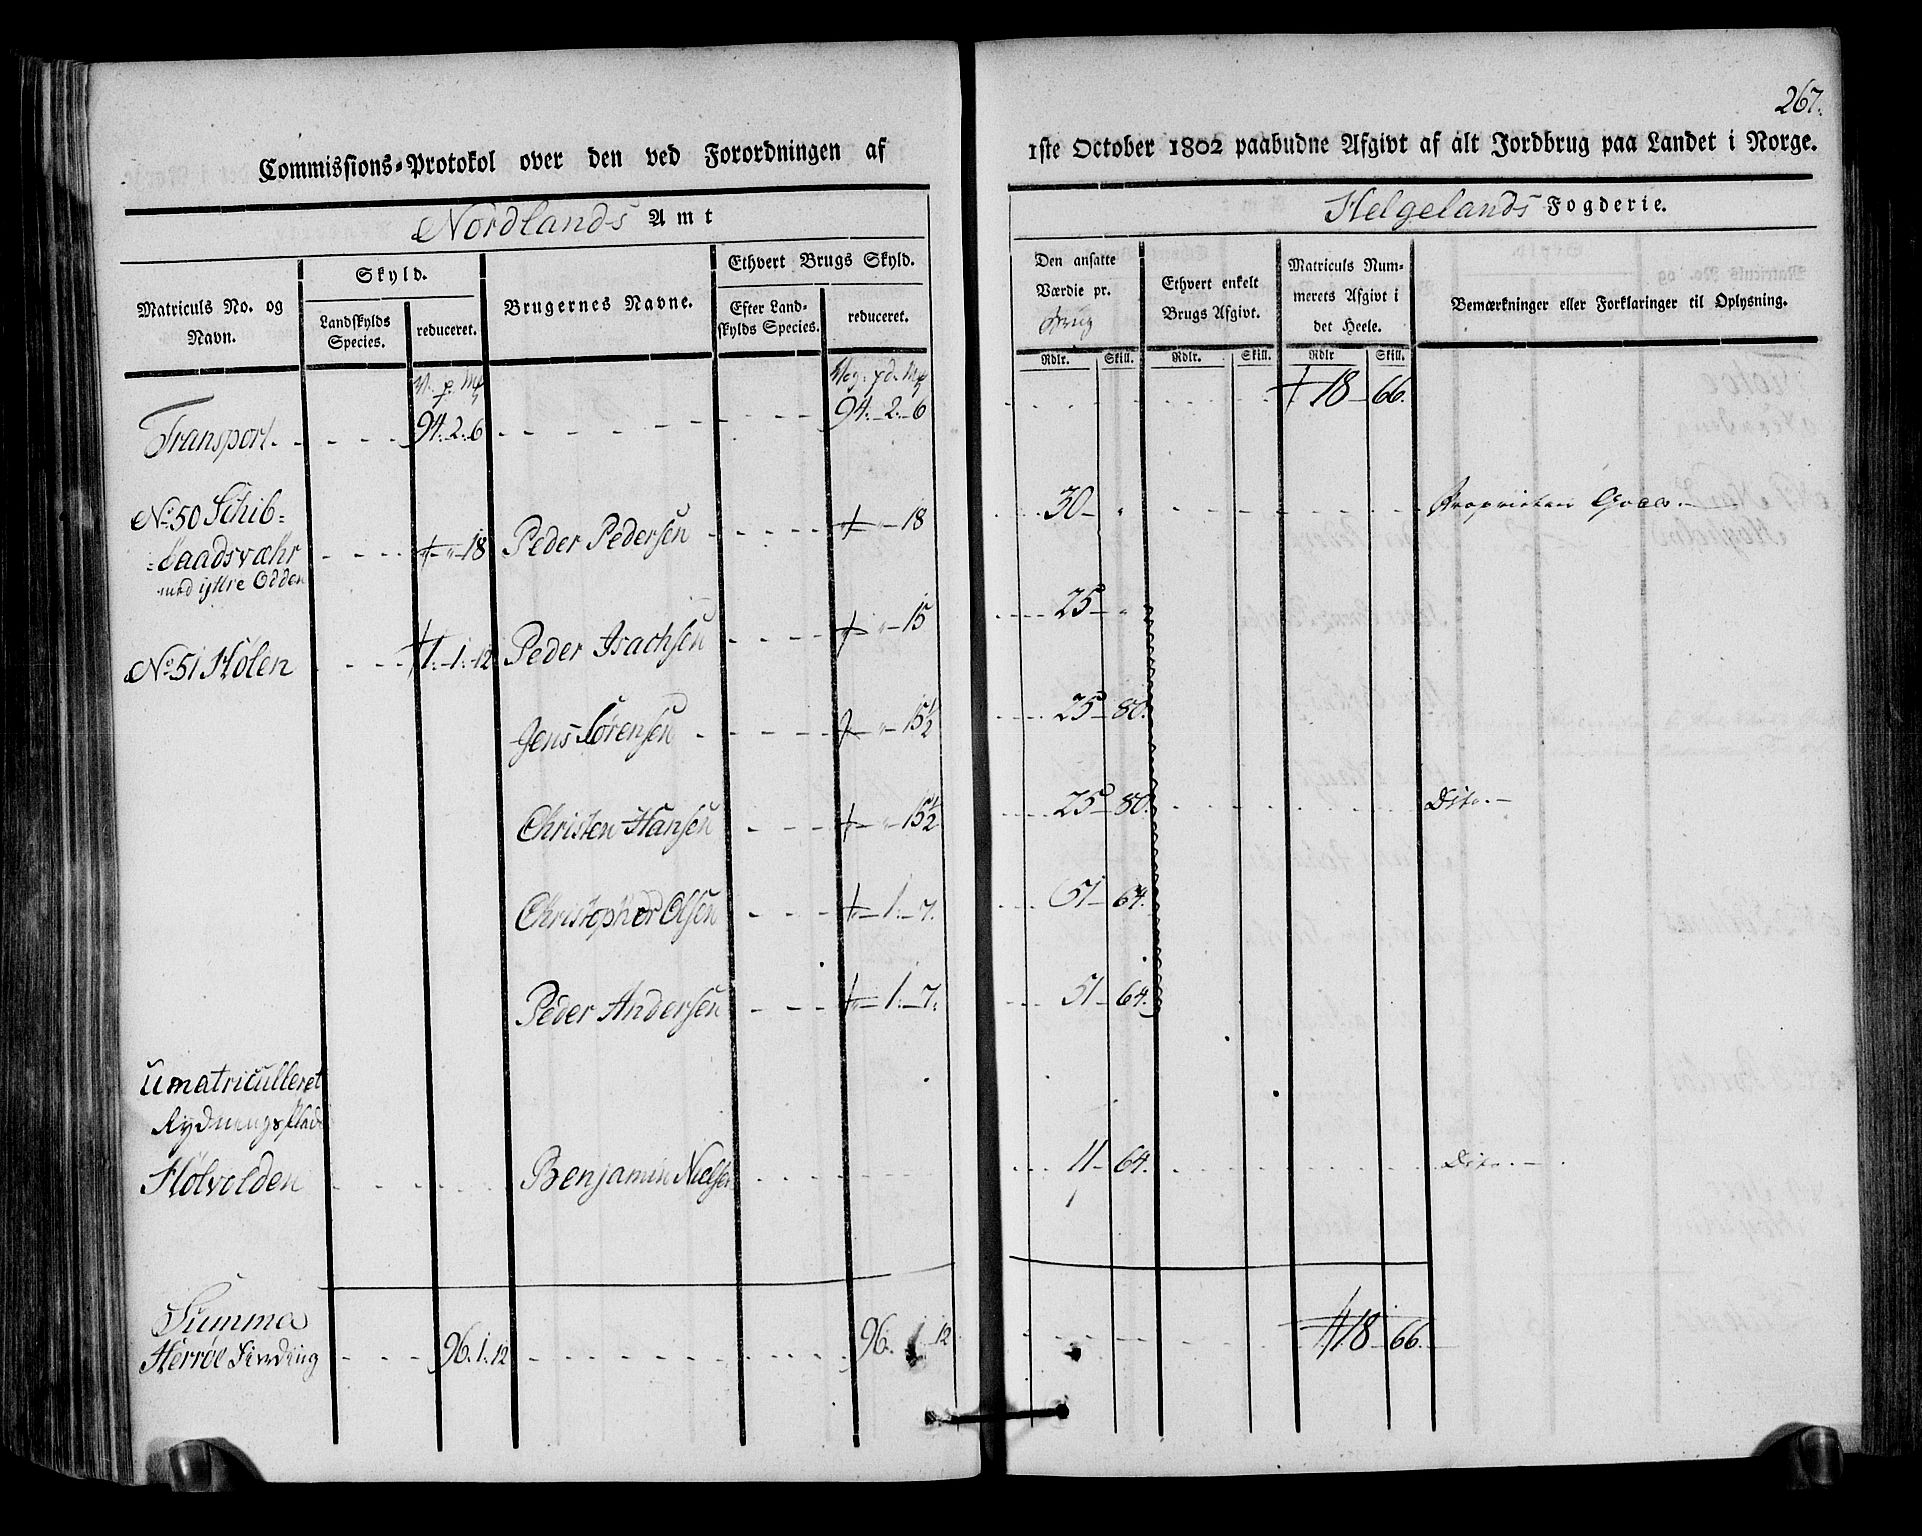 267.
Commissions-Protokol over den ved Forordningen af 1ste October 1802 paabudne Afgivt af alt Jordbrug paa Landet i Norge.
Nordlands Amt
Helgelands Fogderie.
Matriculs No. og Navn.
Skyld.
Landskylds Species.
reduceret.
Brugernes Navne.
Ethvert Brugs Skyld.
Efter Landskylds Species.
reduceret.
Den ansatte Værdie pr. Brug
Ethvert enkelt Brugs Afgivt.
Matriculs Nummerets Afgivt i det Heele.
Bemærkninger eller Forklaringer til Oplysning.
Rdlr. Skill. Rdlr. Skill. Rdlr Skill.
Transport. 94. 2. 6 94. 2. 6 18 66.
No. 50 Schib=
=baadsværhr 18 Peder Pedersen 18 30 „ Proprietær Gods.
med ijttre Odden
No. 51 Hølen 1. 1. 12 Peder Isachsen 15 25 „
Jens Sørensen 15½ 25 80.
Christen Hansen 15½ 25 80. Dito.
Christopher Olsen 1. 7. 51 64.
Peder Andersen 1. 7. 51 64.
Umatriculleret
Rydningsplads
Hølvolden Benjamin Nielsen 11 64. Dito.
Summa
Herrøe Finding 96. 1. 12 96. 1 12 18 66.